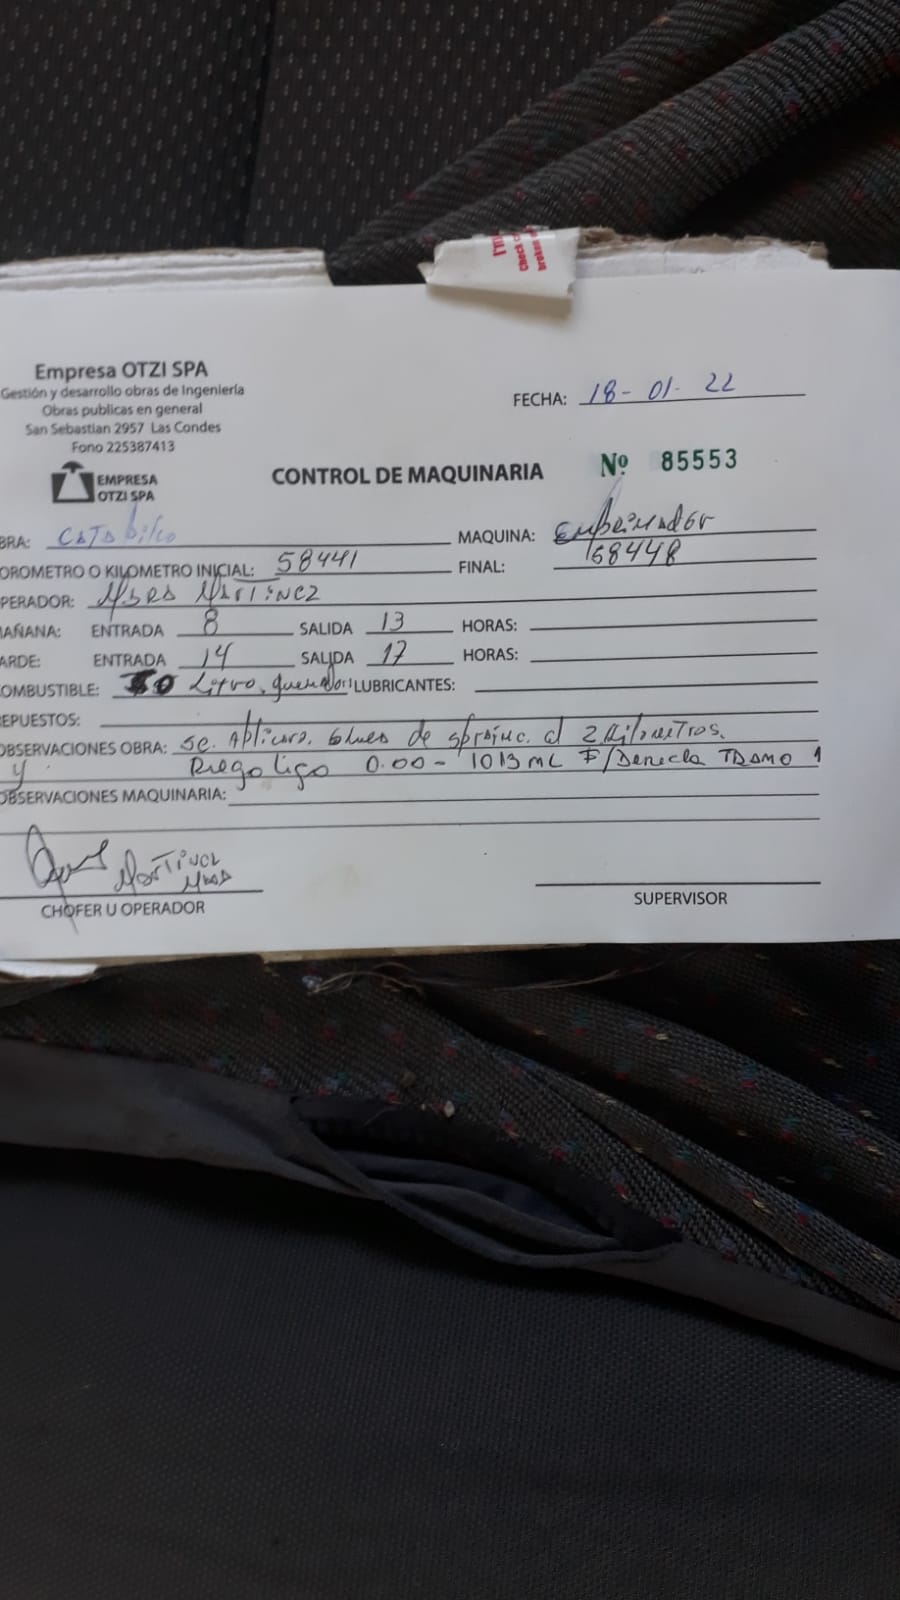 Empresa OTZI SPA
Gestión y desarrollo obras de Ingeniería
Obras publicas en general
San Sebastian 2957 Las Condes
Fono 225387413
EMPRESA
OTZI SPA
FECHA: 18-01-22
CONTROL DE MAQUINARIA
Nº 85553
BRA: Catabilco
MAQUINA: Emprimador
OROMETRO O KILOMETRO INICIAL: 58441
FINAL: 58448
PERADOR: Martinez
AÑANA: ENTRADA 8 SALIDA 13 HORAS:
ARDE: ENTRADA 14 SALIDA 17 HORAS:
OMBUSTIBLE: Litro. LUBRICANTES:
EPUESTOS:
OBSERVACIONES OBRA: se. Aplicaro. de al 2 Kilometros.
y Riego liga 0.00 - 1013 mL TRAMO 1
OBSERVACIONES MAQUINARIA:
Martinez
CHOFER U OPERADOR
SUPERVISOR